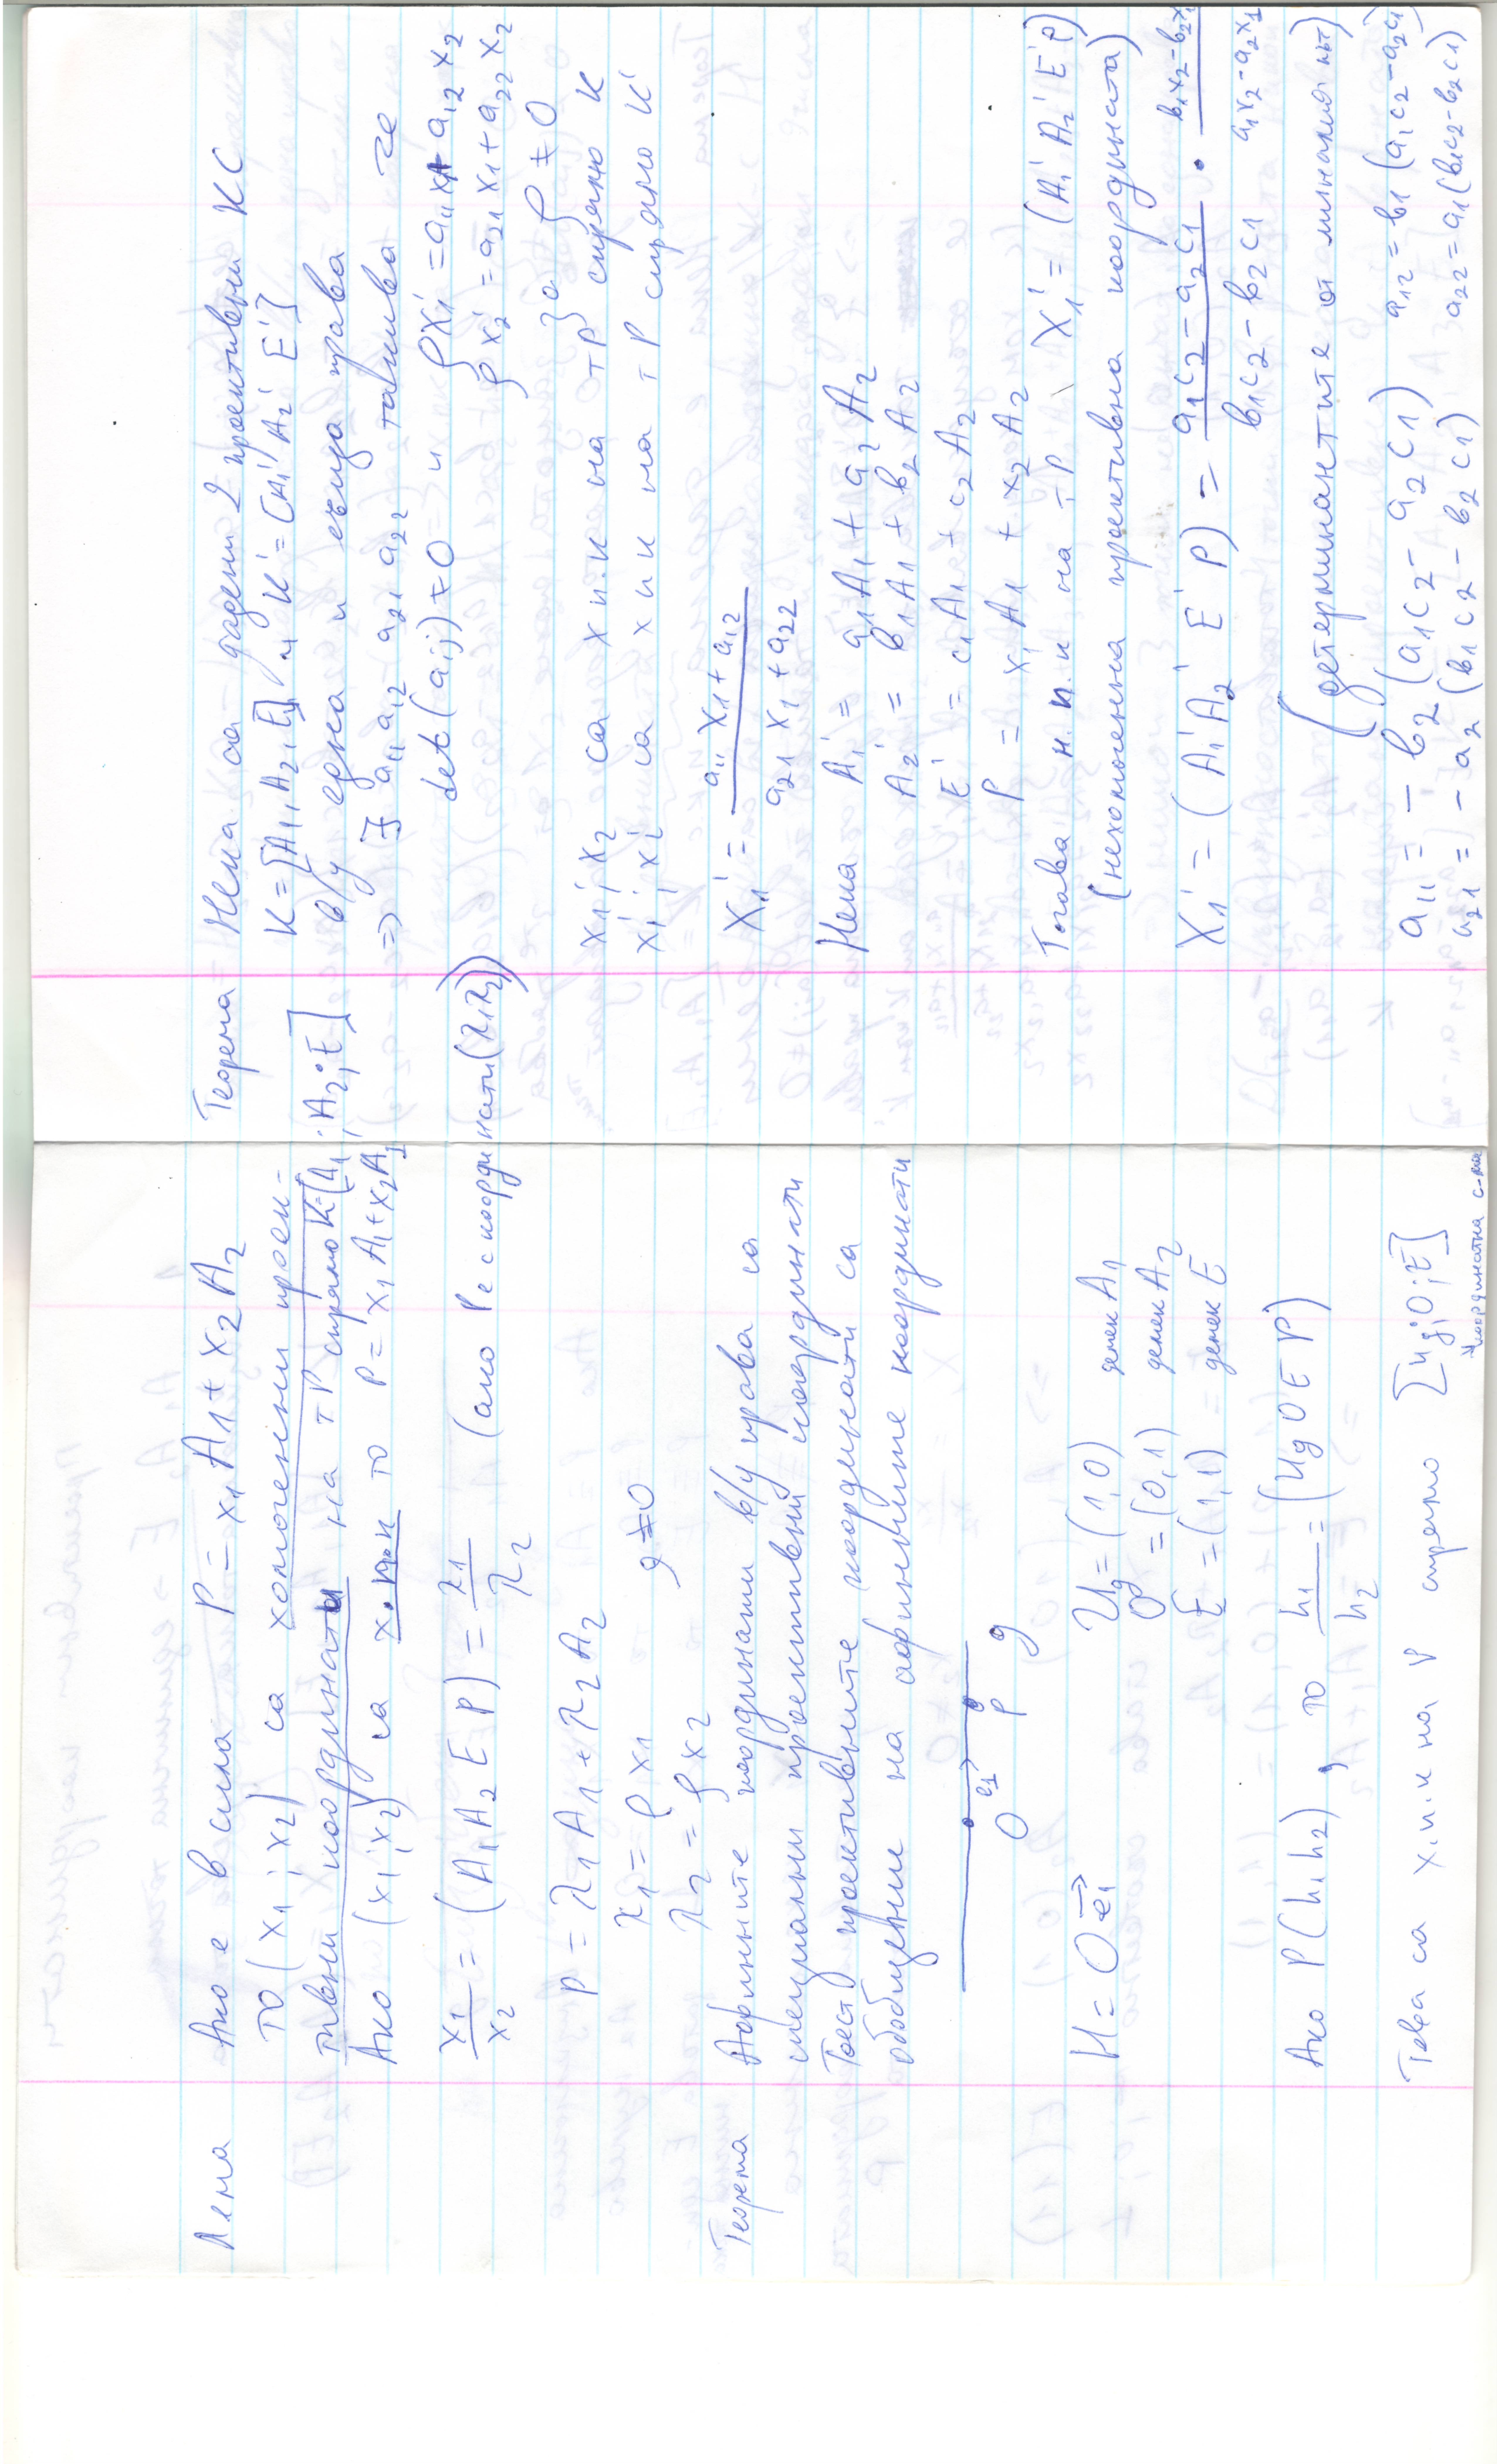 Лема Ако е в сила P = x1 A1 + x2 A2
то (x1; x2) са хомогенни проек-
тивни координати на т P спрямо K=[A1; A2; E]
Ако (x1; x2) са х. п. к то P = x1 A1 + x2 A2
x1/x2 = (A1 A2 E P) = λ1/λ2 (ако P е с координати (λ1 λ2))
P = λ1 A1 + λ2 A2
λ1 = ρ x1
λ2 = ρ x2 ρ ≠ 0
Теорема Афинните координати в/у права са
специални проективни координати
Тоест проективните координати са
обобщение на афинните координати
O e1 P g
H = O e1
Ug = (1, 0) делек A1
O = (0, 1) делек A2
E = (1, 1) делек E
Ако P(h1 h2), то h1/h2 = (Ug O E P)
Това са х.п.к на P спрямо [Ug; O; E]
координатна с-ма
Теорема Нека са дадени 2 проективни КС
K = [A1, A2, E] и K' = [A1' A2' E']
в/у една и съща права
=> ∃ a11 a12 a21 a22 такива че
det(aij) ≠ 0 и
ρ x1' = a11 x1 + a12 x2
ρ x2' = a21 x1 + a22 x2
ρ ≠ 0
x1; x2 са х п.к на т P спрямо K
x1'; x2' са х п к на т P спрямо K'
x1' = (a11 x1 + a12)/(a21 x1 + a22)
Нека A1' = a1 A1 + a2 A2
A2' = b1 A1 + b2 A2
E' = c1 A1 + c2 A2
P = x1 A1 + x2 A2
Тогава н. п. к на т P X1' = (A1' A2' E' P)
(нехомогенна проективна координата)
X1' = (A1' A2' E' P) = (a1c2 - a2c1)/(b1c2 - b2c1) · (b1x2 - b2x1)/(a1x2 - a2x1)
(детерминантите от миналия път)
a11 = - b2 (a1c2 - a2c1) a12 = b1 (a1c2 - a2c1)
a21 = - a2 (b1c2 - b2c1) a22 = a1 (b1c2 - b2c1)